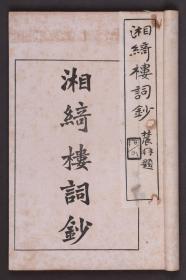 湘綺樓詞鈔
湘綺樓詞鈔
題